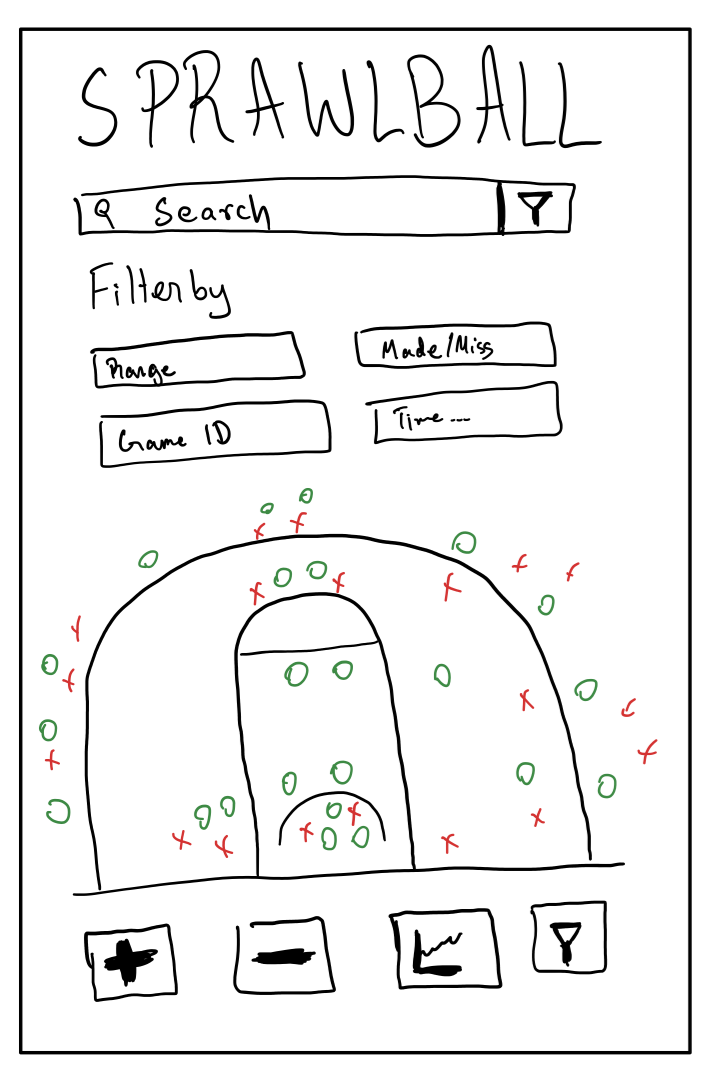 SPRAWLBALL
Search
Filter by
Range
Made/Miss
Game ID
Time...